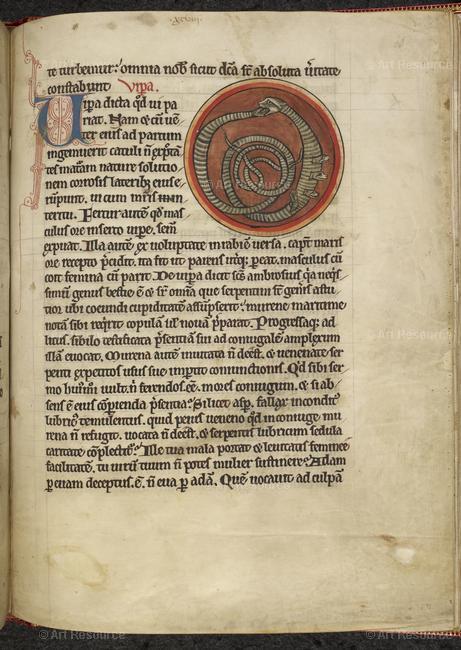 te turbemur: omnia nob sicut dca st absoluta ūitate
constabunt Vipa.
Uipa dicta qd ui pa
riat. Nam et cū uē
ter eius ad partum
ingemuerit catuli n expta
tes maturam nature solutio
nem corrosis laterib eius e
rūpunt. ui cum
teritu. Fertur autē qd mas
culus ore inserto uipe, sem
expuat. Illa autē ex uoluptate in rabiē uersa. caput maris
ore recepto pcidit. ita fit ut parens utq; peat. masculus cū
coit femina cū parit. De uipa dicit scs ambrosius qa neqs
simū genus bestie ē et sr omā que serpentini st genis astu
tior. ubi coeundi cupiditatē assūpserit. murene maritime
notā sibi reqrit copulā ul nouā pparat. Progressaq; ad
litus. sibilo testificata psentiā sui ad coniugale amplexum
illā euocat. Murena autē inuitata n deest. et uenenate ser
penti expetitos usus sue impertit coniunctionis. Qd sibi ser
mo huiusmi uult. n ferendos ee. mores coniugum. et si ab
sens ē eius opperienda psentia. Sit licet asp. fallax incondit
lubric temulentus. quid peius ueneno qd in coniuge mu
rena n refugit. uocata n deest. et serpentis lubricum sedula
caritate cōplectit. Ille tua mala portat et leuitatis feminee
facilitatē. tu uirū tuum n potes mulier sustinere? Adam
p euam deceptus. ē. n eua p adā. Quē uocauit ad culpā
© Art Resource
© Art Resource
© Art Resource
© Art Resource